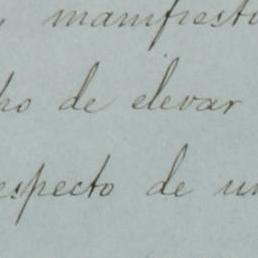 manifiesto
ho de elevar
especto de un